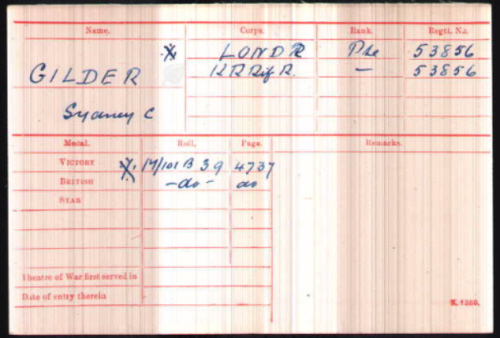 Name. Corps. Rank. Regtl. No.
GILDER * LOND R Pte 53856
K R Rif R. — 53856
Sydney C
Medal. Roll. Page. Remarks.
VICTORY * M/101 B 39 4737
BRITISH —do— do
STAR
Theatre of War first served in
Date of entry therein
K. 1380.